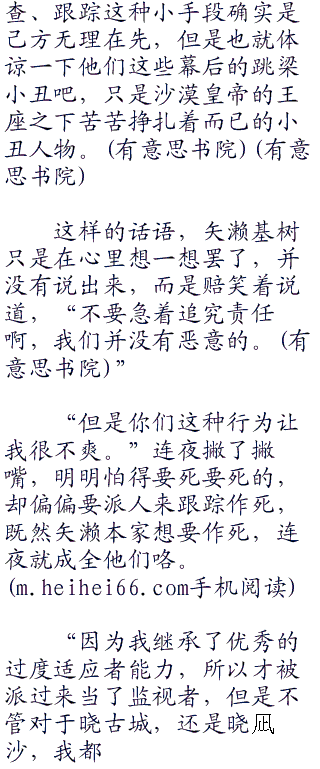 查、跟踪这种小手段确实是
己方无理在先，但是也就体
谅一下他们这些幕后的跳梁
小丑吧，只是沙漠皇帝的王
座之下苦苦挣扎着而已的小
丑人物。(有意思书院)(有意
思书院)
这样的话语，矢濑基树
只是在心里想一想罢了，并
没有说出来，而是赔笑着说
道，“不要急着追究责任
啊，我们并没有恶意的。(有
意思书院)”
“但是你们这种行为让
我很不爽。”连夜撇了撇
嘴，明明怕得要死要死的，
却偏偏要派人来跟踪作死，
既然矢濑本家想要作死，连
夜就成全他们咯。
(m.heihei66.com手机阅读)
“因为我继承了优秀的
过度适应者能力，所以才被
派过来当了监视者，但是不
管对于晓古城，还是晓凪
沙，我都